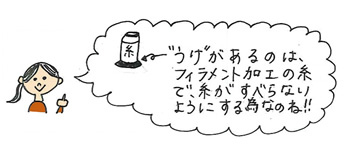 糸
"うげ"があるのは、
フィラメント加工の糸
で、糸がすべらない
ようにする為なのね!!